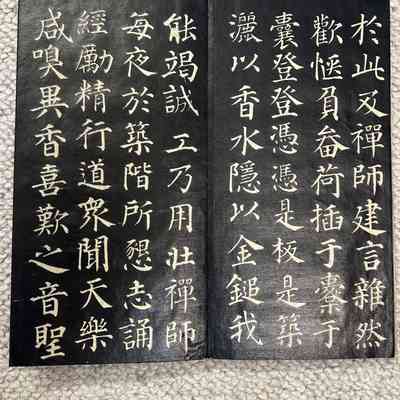 於此及禪師建言雜然
歡愜負畚荷插于橐于
囊登登憑憑是板是築
灑以香水隱以金鎚我
能竭誠工乃用壯禪師
每夜於築階所懇志誦
經勵精行道眾聞天樂
咸嗅異香喜歎之音聖